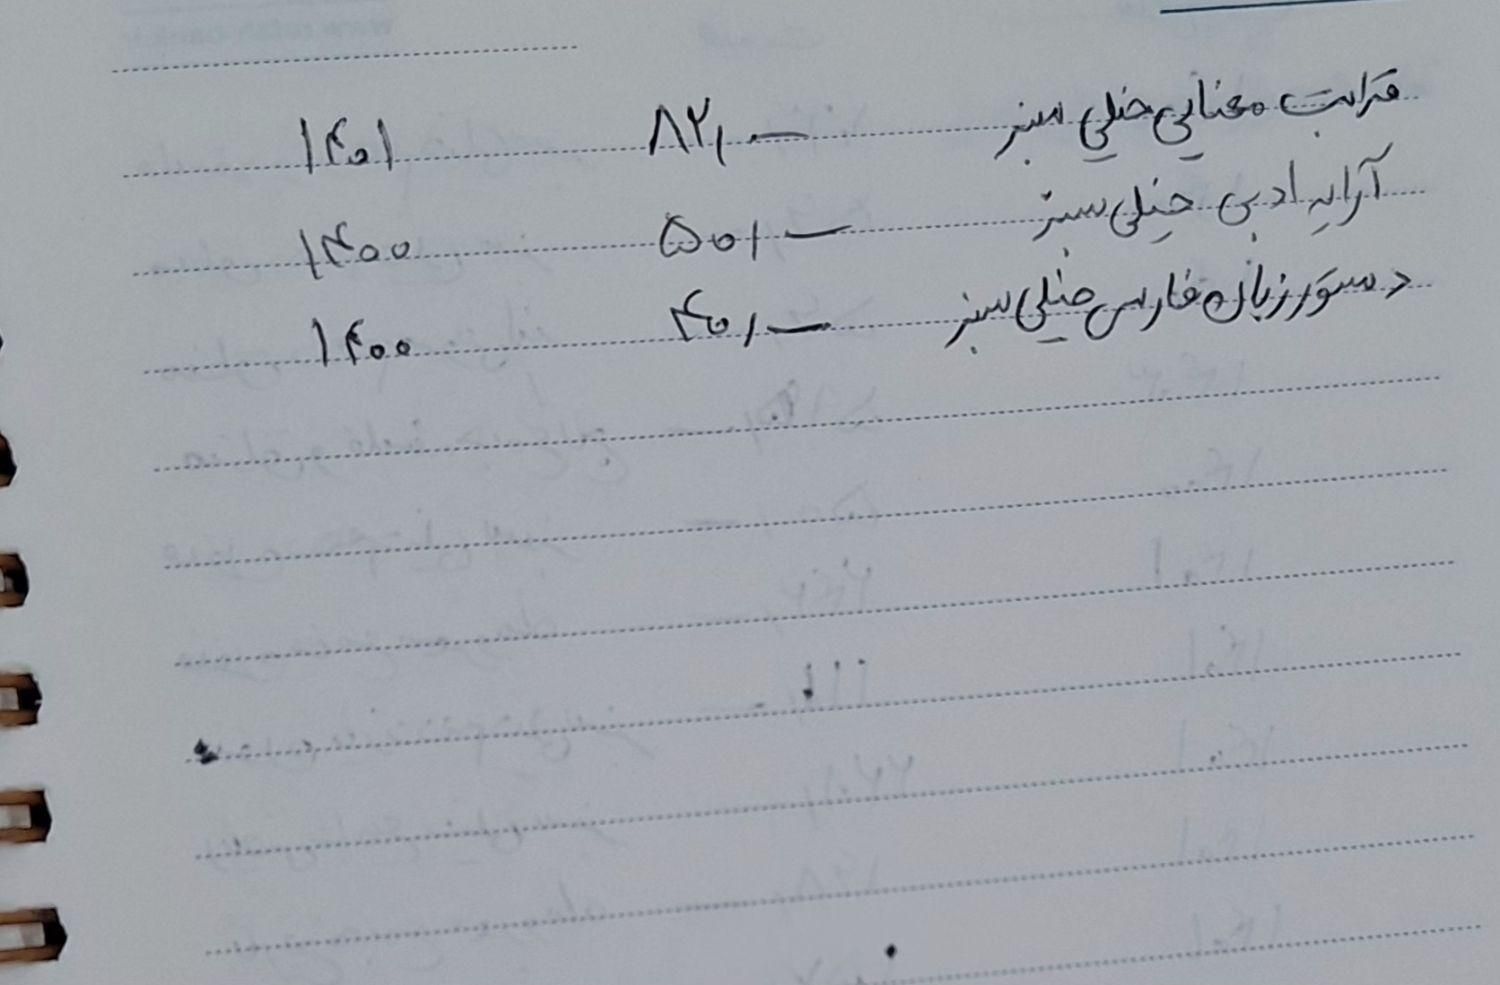 قرابت معنایی خیلی سبز ۸۲،— ۱۴۰۱
آرایه ادبی خیلی سبز ۵۰،— ۱۴۰۰
دستور زبان فارسی خیلی سبز ۴۰،— ۱۴۰۰